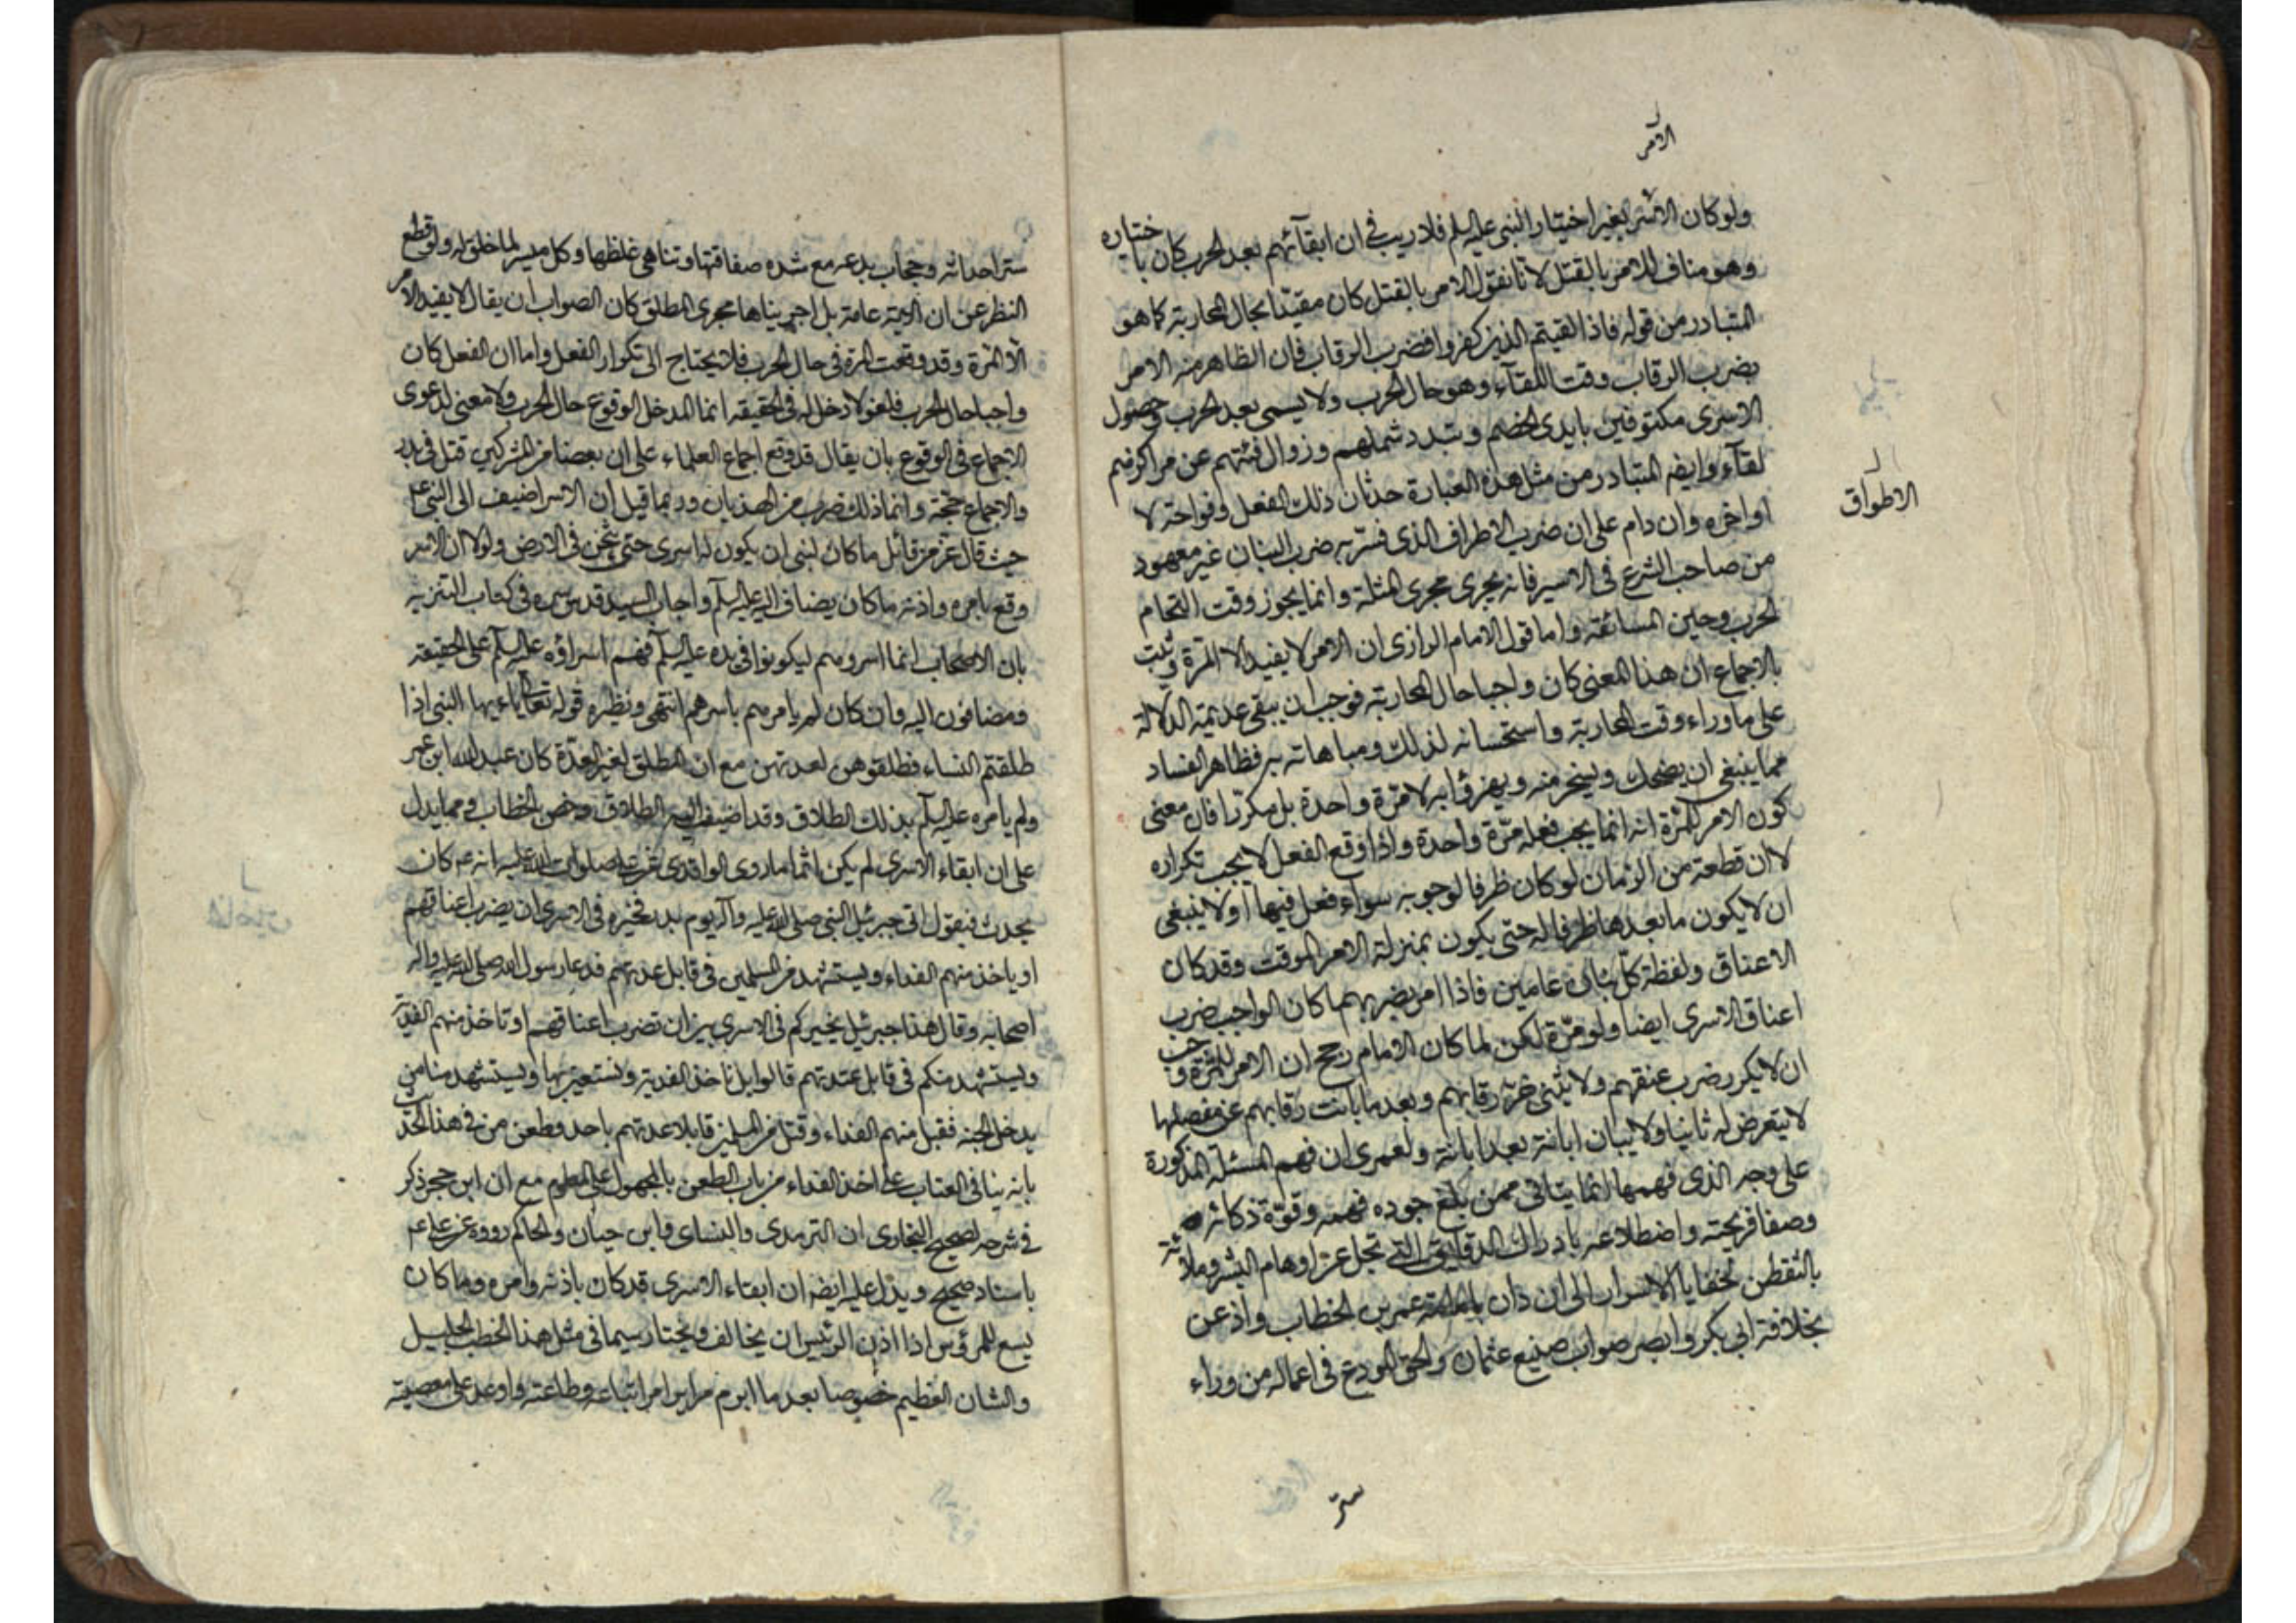 الامر
ولو كان الاسر بغير اختيار النبى عليه السلم فلا ريب فى ان ابقآئهم بعد الحرب كان باختياره
وهو مناف للامر بالقتل لانا نقول الامر بالقتل كان مقيدا بحال المحاربة كما هو
المتبادر من قوله فاذا لقيتم الذين كفروا فضرب الرقاب فان الظاهر منه الامر
بضرب الرقاب وقت اللقآء وهو حال الحرب ولا يسمى بعد الحرب وحصول
الاسرى مكتوفين بايدى الخصم وتبدد شملهم وزوال فئتهم عن مراكزهم
لقآء وايضا المتبادر من مثل هذه العبارة حدثان ذلك الفعل وفواتحه لا
اواخره وان دام على ان ضرب الاطراف الذى فسر به ضرب البنان غير معهود
الاطواق
من صاحب الشرع فى الاسير فانه يجرى مجرى المثلة وانما يجوز وقت التحام
الحرب وحين المسائفة واما قول الامام الرازى ان الامر لا يفيد الا المرة وثبت
بالاجماع ان هذا المعنى كان واجبا حال المحاربة فوجب ان يبقى عديمة الدلالة
على ما وراء وقت المحاربة واستحسانه لذلك ومباهاته به فظاهر الفساد
مما ينبغى ان يضحك ويسخر منه ويهزؤا به لا مرة واحدة بل مكررا فان معنى
كون الامر للمرة انه انما يجب فعله مرة واحدة واذا وقع الفعل لا يجب تكراره
لا ان قطعة من الزمان لو كان ظرفا لوجوبه سواء فعل فيها او لا ينبغى
ان لا يكون ما بعدها ظرفا له حتى يكون بمنزلة الامر الموقت وقد كان
الاعناق ولفظة كل بنان عامين فاذا امر بضربهما كان الواجب ضرب
اعناق الاسرى ايضا ولو مرة لكن لما كان الامام رجح ان الامر للمرة وجب
ان لا يكرر ضرب عنقهم ولا يثنى حز رقابهم وبعد ما بانت رقابهم عن مفصلها
لا يتعرض له ثانيا ولا يبان ابانة بعد ابانة ولعمرى ان فهم المسئلة المذكورة
على وجه الذى فهمها انما يتاتى ممن بلغ جوده فهمه وقوة ذكائه
وصفا قريحته واضطلاعه بادراك الدقايق التى تجل عن اوهام البشر وملائه
بالتفطن لخفايا الاسرار الى ان دان عمر بن الخطاب واذعن
بخلافة ابى بكر وابصر صواب صنيع عثمان والحق المودع فى اعماله من وراء
ستر
ستر احداثه وحجاب بدعه مع شده صفاقتها وتناهى غلظها وكل ميسر لما خلق له ولو قطع
النظر عن ان الاية عامة بل اجريناها مجرى المطلق كان الصواب ان يقال لا يفيد الامر
الا المرة وقد وقعت المرة فى حال الحرب فلا يحتاج الى تكرار الفعل واما ان الفعل كان
واجبا حال الحرب فلغو لا دخل له فى الحقيقه انما المدخل لوقوع حال الحرب ولا معنى لدعوى
الاجماع فى الوقوع بان يقال قد وقع اجماع العلماء على ان بعضا من المشركين قتل فى بدر
والاجماع حجة وانما ذلك ضرب من الهذيان وربما قيل ان الاسر اضيف الى النبى ع
حيث قال عز من قائل ما كان لنبى ان يكون له اسرى حتى يثخن فى الارض ولولا ان الاسر
وقع بامره واذنه ما كان يضاف اليه عليه السلم واجاب السيد قدس سره فى كتاب التنزيه
بان الاصحاب انما اسروهم ليكونوا فى يده عليه السلم فهم اسراؤه عليه السلم على الحقيقه
ومضافون اليه وان كان لم يامرهم باسرهم انتهى ونظيره قوله تعالى يا ايها النبى اذا
طلقتم النساء فطلقوهن لعدتهن مع ان المطلق لغير العدة كان عبد الله ابن عمر
ولم يامره عليه السلم بذلك الطلاق وقد اضيف اليه الطلاق وخص الخطاب فيه مما يدل
على ان ابقاء الاسرى لم يكن اثما ما روى الواقدى عن على صلوات الله عليه انه عم كان
يحدث فيقول اتى جبرئيل النبى صلى الله عليه وآله يوم بدر فخيره فى الاسرى ان يضرب اعناقهم
او ياخذ منهم الفداء ويستشهد من المسلمين فى قابل عدتهم فدعا رسول الله صلى الله عليه واله
اصحابه وقال هذا جبرئيل يخيركم فى الاسرى بين ان تضرب اعناقهم او تاخذ منهم الفدية
ويستشهد منكم فى قابل عدتهم قالوا بل ناخذ الفدية ونستعين بها ويستشهد منا من
يدخل الجنه فقبل منهم الفداء وقتل من المسلمين قابلا عدتهم باحد وطعن من فى هذا الحديث
بانه ينافى العتاب على اخذ الفداء من باب الطعن بالمجهول على المعلوم مع ان ابن حجر ذكر
فى شرحه لصحيح البخارى ان الترمذى والنساى وابن حبان والحاكم رووه عن على عم
باسناد صحيح ويدل عليه ايضا ان ابقاء الاسرى قد كان باذنه وامره وما كان
يسع للمرؤس اذا اذن الرئيس ان يخالف ويختار سيما فى مثل هذا الخطب الجليل
والشان العظيم خصوصا بعد ما ابرم مرابرام اتباعه وطاعته واوعد على معصيته